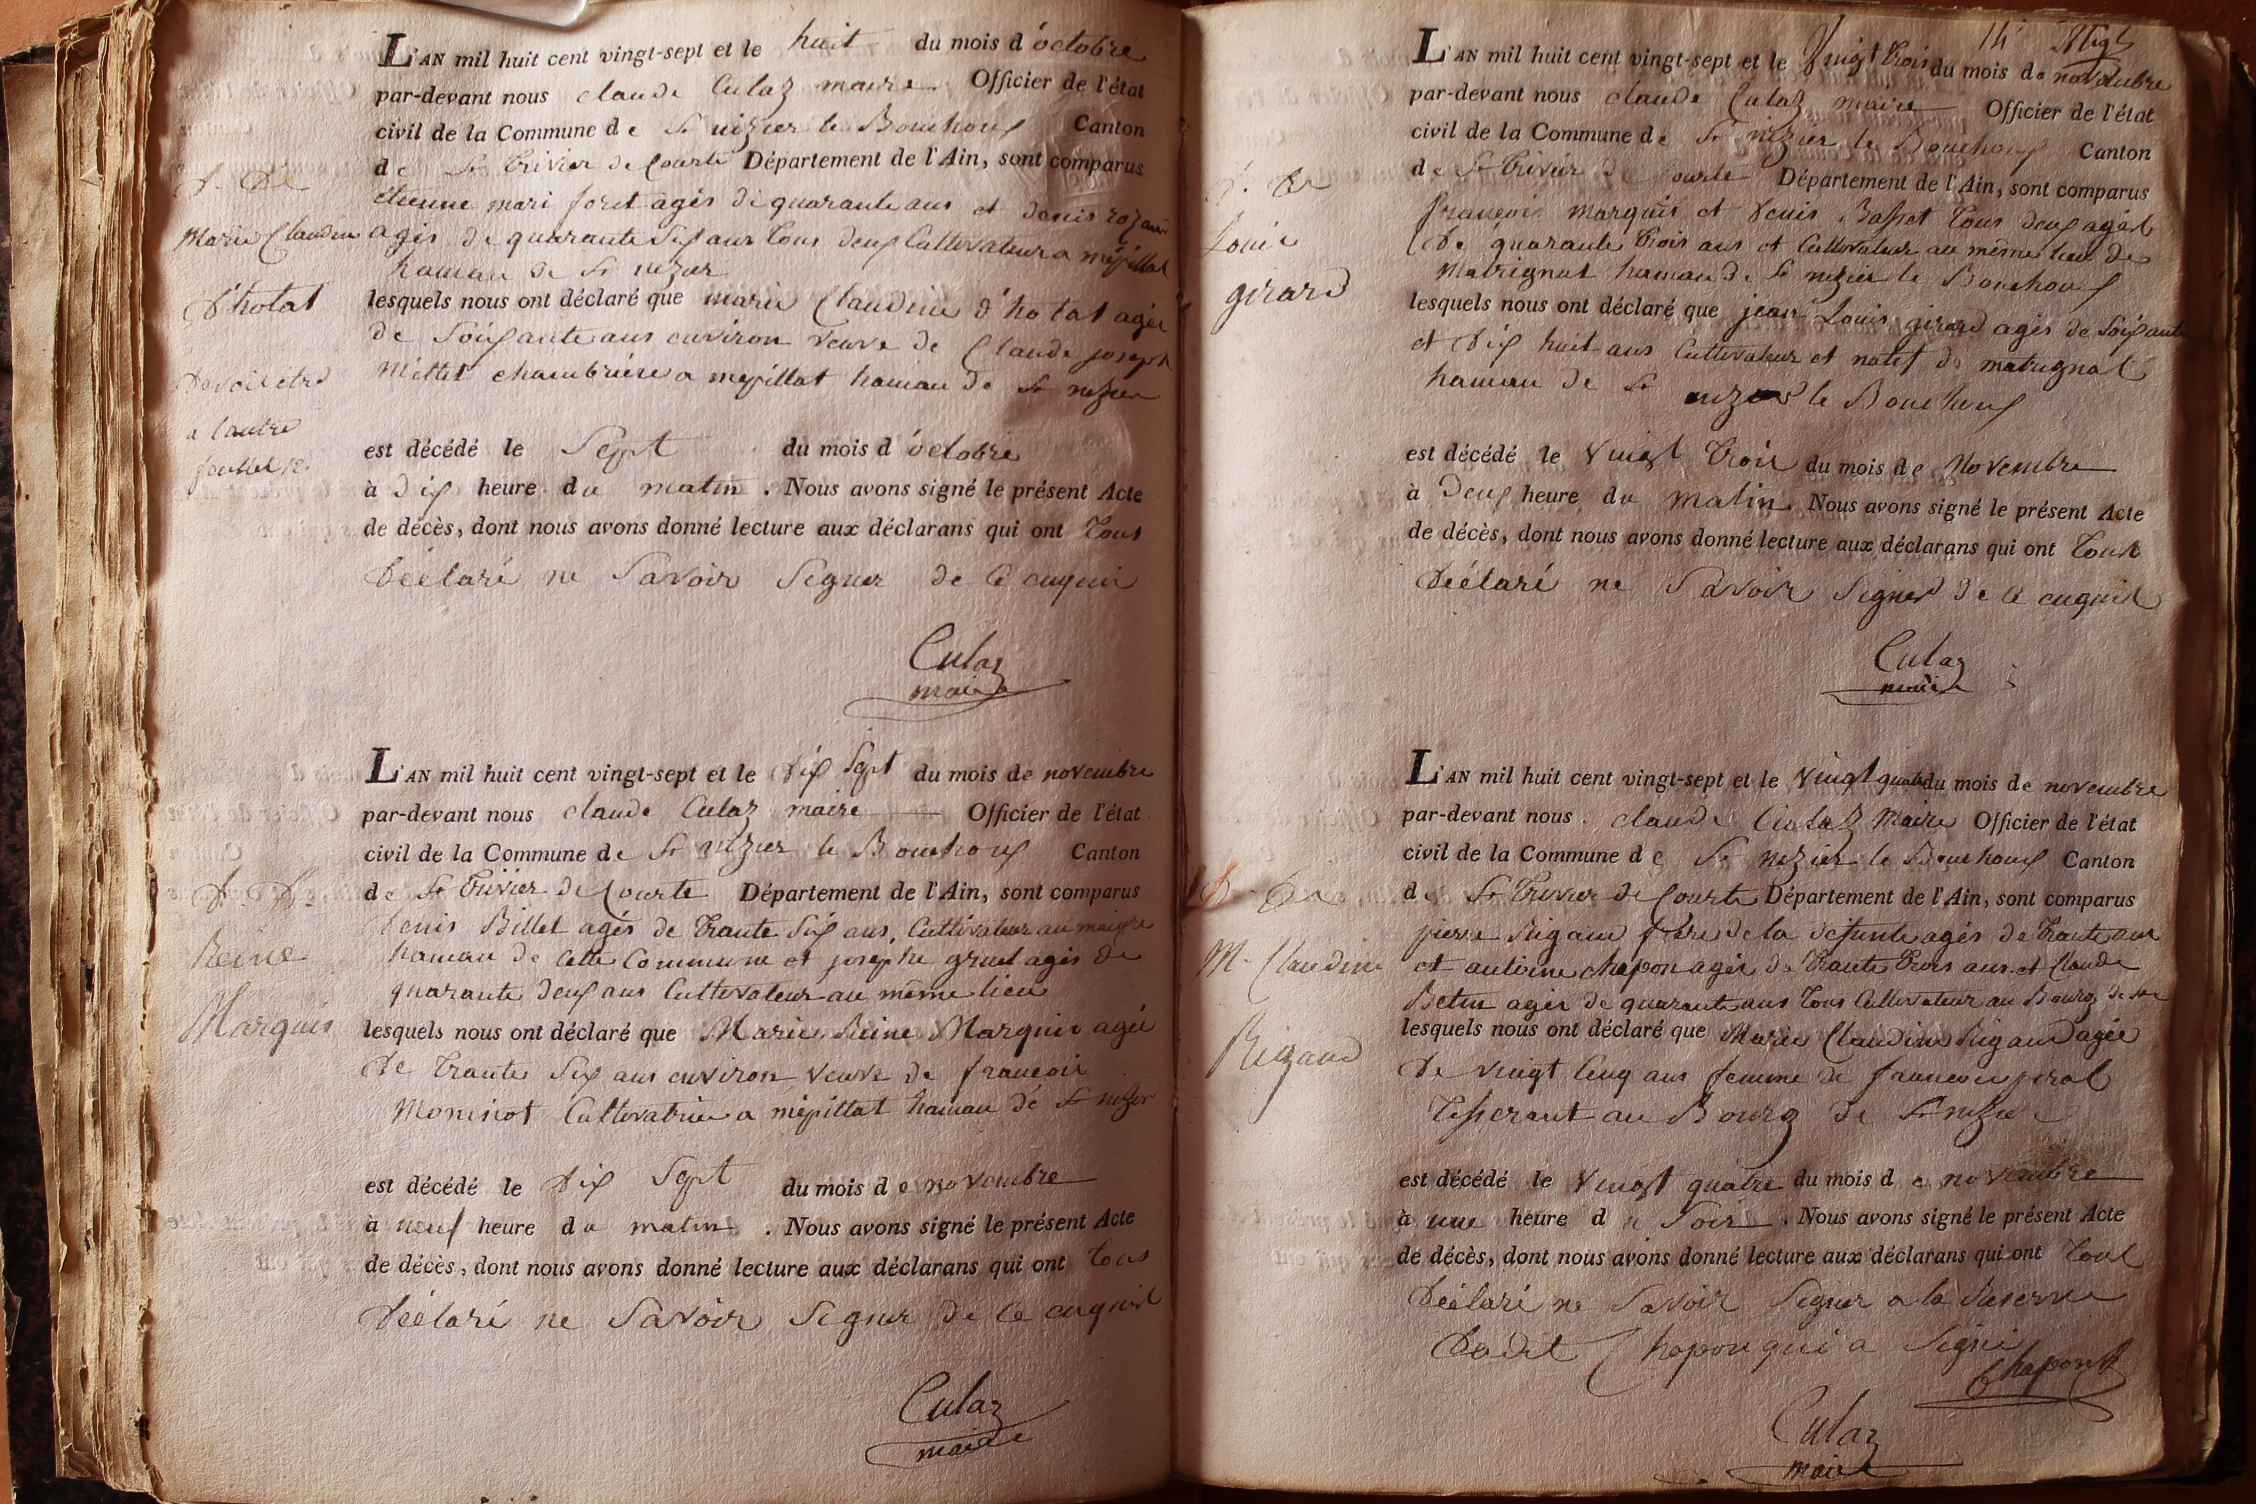 L'AN mil huit cent vingt-sept et le huit du mois d'octobre
par-devant nous claude Culaz maire Officier de l'état
civil de la Commune de St nizier le Bouchoux Canton
de St Trivier de Courte Département de l'Ain, sont comparus
étienne mari foret agés de quarante ans et denis
agés de quarante six ans tous deux Cultivateur a mépillat
hamau de St nizier
lesquels nous ont déclaré que marie Claudine d'hotat agée
de Soixante ans environ veuve de Claude joseph
Millet chambrière a mepillat hamau de St nizier
est décédé le Sept du mois d'octobre
à dix heure du matin. Nous avons signé le présent Acte
de décès, dont nous avons donné lecture aux déclarans qui ont tous
Déclaré ne Savoir Segner de ce enquis
Culaz
maire
D. De
Marie Claudine
D'hotat
Devoit etre
a lautre
feuillet 12.
L'AN mil huit cent vingt-sept et le Dix Sept du mois de novembre
par-devant nous claude Culaz maire Officier de l'état
civil de la Commune de St nizier le Bouchoux Canton
de St Trivier de Courte Département de l'Ain, sont comparus
Denis Billet agés de trante Six ans, Cultivateur au
hamau de Cette Commune et josephe gruel agés de
quarante deux ans Cultivateur au même lieu
lesquels nous ont déclaré que Marie Reine Marquis agée
De trante Six ans environ veuve de francois
Moninot Cultivatrice a mépillat hamau de St nizier
est décédé le Dix Sept du mois de novembre
à neuf heure du matin. Nous avons signé le présent Acte
de décès, dont nous avons donné lecture aux déclarans qui ont tous
Déclaré ne Savoir Segner de ce enquis
Culaz
maire
D. De
Reine
Marquis
14
L'AN mil huit cent vingt-sept et le Vingt trois du mois de novembre
par-devant nous claude Culaz maire Officier de l'état
civil de la Commune de St nizier le Bouchoux Canton
de St Trivier de Courte Département de l'Ain, sont comparus
francois marquis et Denis Basset tous deux agés
De quarante trois ans et Cultivateur au même lieu de
Matrignat hamau de St nizier le Bouchoux
lesquels nous ont déclaré que jean Louis girard agés de Soixante
et Dix huit ans Cultivateur et natif de matrignat
hamau de St nizier le Bouchoux
est décédé le Vingt trois du mois de Novembre
à Deux heure du matin. Nous avons signé le présent Acte
de décès, dont nous avons donné lecture aux déclarans qui ont tous
Déclaré ne Savoir Signer de ce enquis
Culaz
maire
D. De
Louis
girard
L'AN mil huit cent vingt-sept et le Vingt quatre du mois de novembre
par-devant nous claude Culaz Maire Officier de l'état
civil de la Commune de St nizier le Bouchoux Canton
de St Trivier de Courte Département de l'Ain, sont comparus
pierre Rigaud frère de la défunte agés de trante ans
et antoine chapon agés de trante trois ans et Claude
Betin agés de quarante ans tous Cultivateur au Bourg de
lesquels nous ont déclaré que Marie Claudine Rigaud agée
De vingt Cinq ans femme de francois
Tisserant au Bourg de St nizier
est décédé le Vingt quatre du mois de novembre
à une heure du Soir. Nous avons signé le présent Acte
de décès, dont nous avons donné lecture aux déclarans qui ont tous
Déclaré ne Savoir Signer a la Reserve
Dudit Chapon qui a Signé
Chapon
Culaz
maire
D. De
M. Claudine
Rigaud